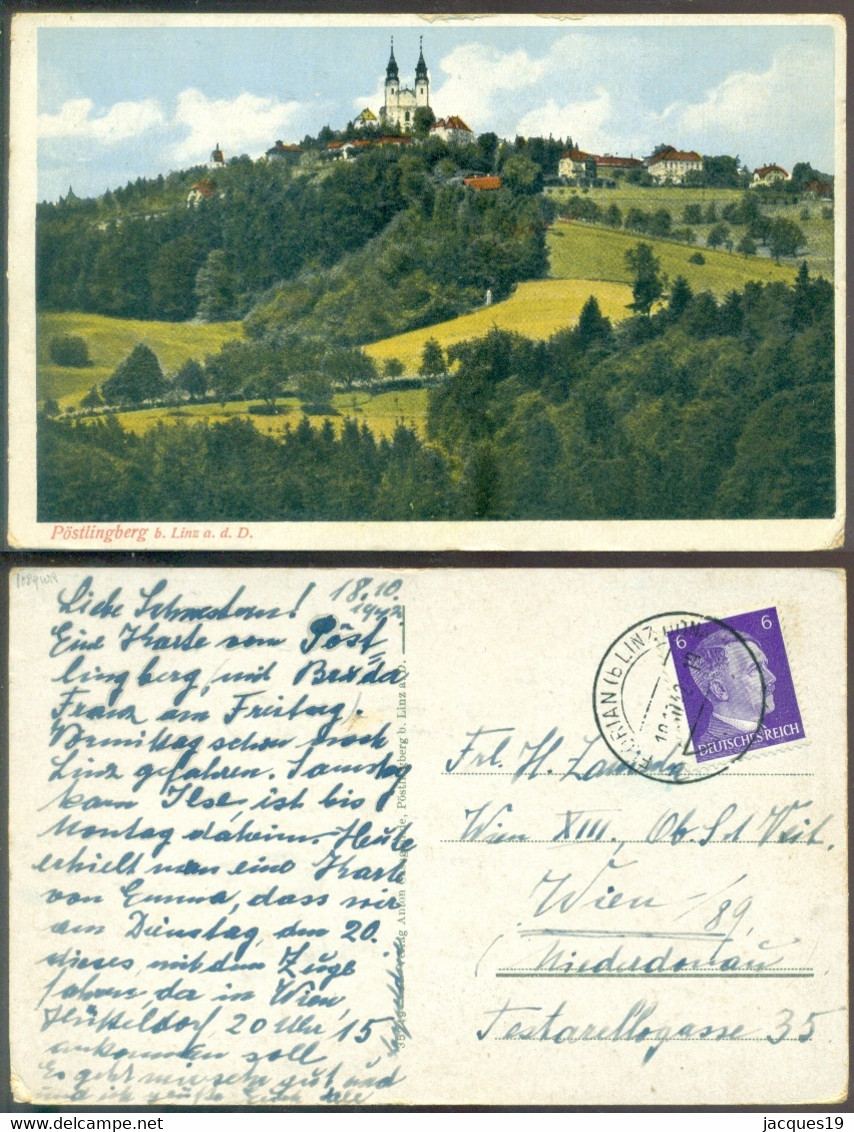 Pöstlingberg b. Linz a. d. D.
18.10.
Liebe Schwestern!
Eine Karte vom Pöst
lingberg, (mit Bruda
Franz am Freitag).
Vormittag schon nach
Linz gefahren. Samstag
kam Ilse, ist bis
Montag daheim. Heute
erhielt man eine Karte
von Emma, dass wir
am Dienstag, den 20.
dieses, mit dem Zuge
fahren, da in Wien,
Hütteldorf, 20 Uhr 15
ankommen soll
Es geht mir sehr gut und
und ich grüße Euch alle
herzlich
Pöstlingberg b. Linz a. D.
FLORIAN (b LINZ
6 6
DEUTSCHES REICH
Frl. H.
Wien XIII., Ob. St Veit.
Wien /89,
(Niederdonau)
Testarellogasse 35
jacques19